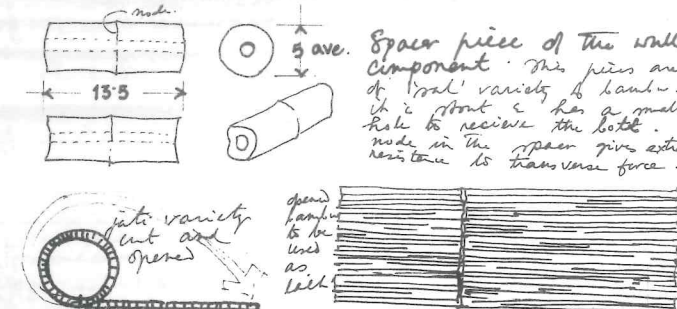 node.
5 ave.
13.5
Spacer piece of the wall
component. This piece are
of 'bal' variety of bamboo
it is stout & has a small
hole to recieve the bolt.
node in the spacer gives extra
resistence to transverse force.
jati variety
cut and
opened
opened
bamboo
to be
used
as
lath